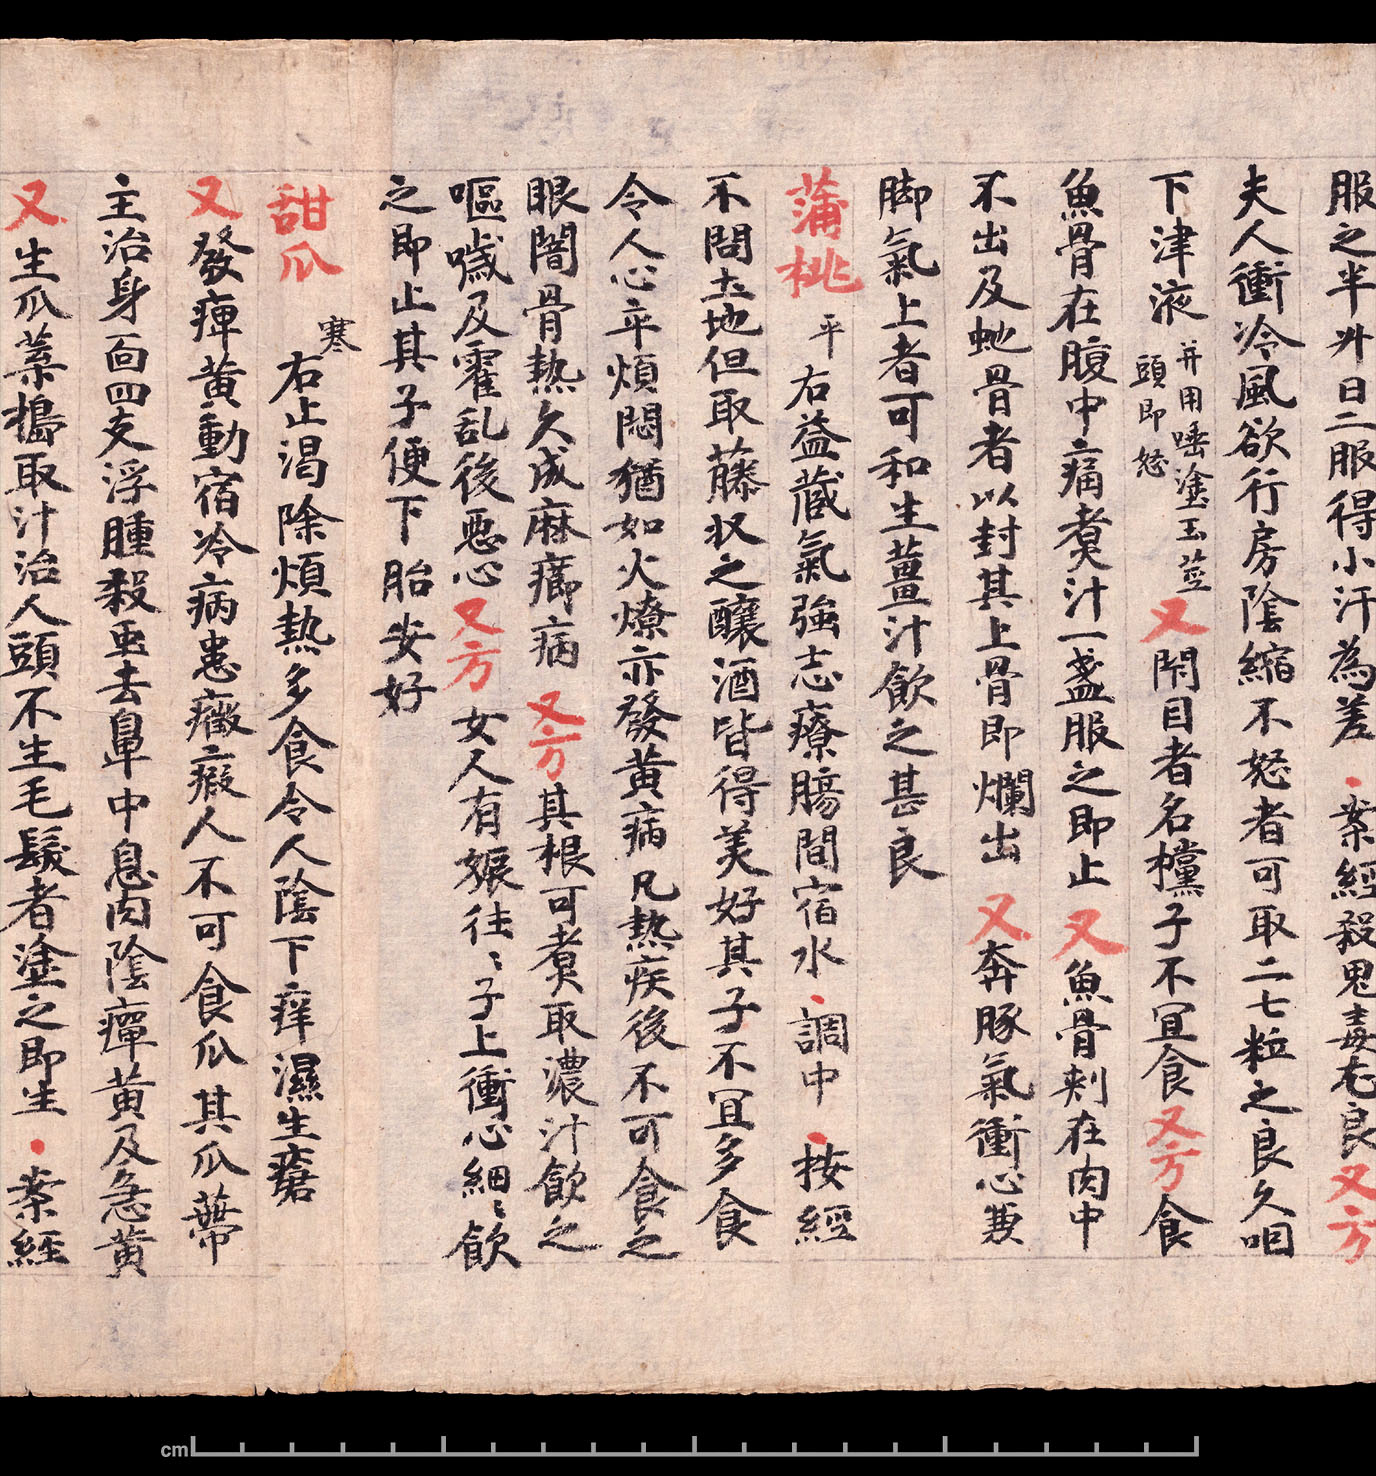 服之半升日二服得小汗為差・案經殺鬼毒尤良又方
夫人衝冷風欲行房陰縮不怒者可取二七粒之良久咽
下津液并用唾塗玉莖頭即怒又閇目者名欓子不宜食又方食
魚骨在腹中痛煑汁一盞服之即止又魚骨刾在肉中
不出及虵骨者以封其上骨即爛出又奔豚氣衝心兼
脚氣上者可和生薑汁飲之甚良
蒲桃平右益蔵氣強志療腸間宿水・調中・按經
不問土地但取藤収之釀酒皆得美好其子不冝多食
令人心卒煩悶猶如火燎亦發黃病凡熱疾後不可食之
眼闇骨熱久成麻癤病又方其根可煑取濃汁飲之
嘔噦及霍乱後惡心又方女人有娠往〻子上衝心細〻飲
之即止其子便下胎安好
甜瓜寒右止渴除煩熱多食令人陰下痒濕生瘡
又發痺黃動宿冷病患癥瘕人不可食瓜其瓜蔕
主治身面四支浮腫殺蛊去鼻中息肉陰癉黃及急黃
又生瓜葉搗取汁治人頭不生毛髮者塗之即生・案經